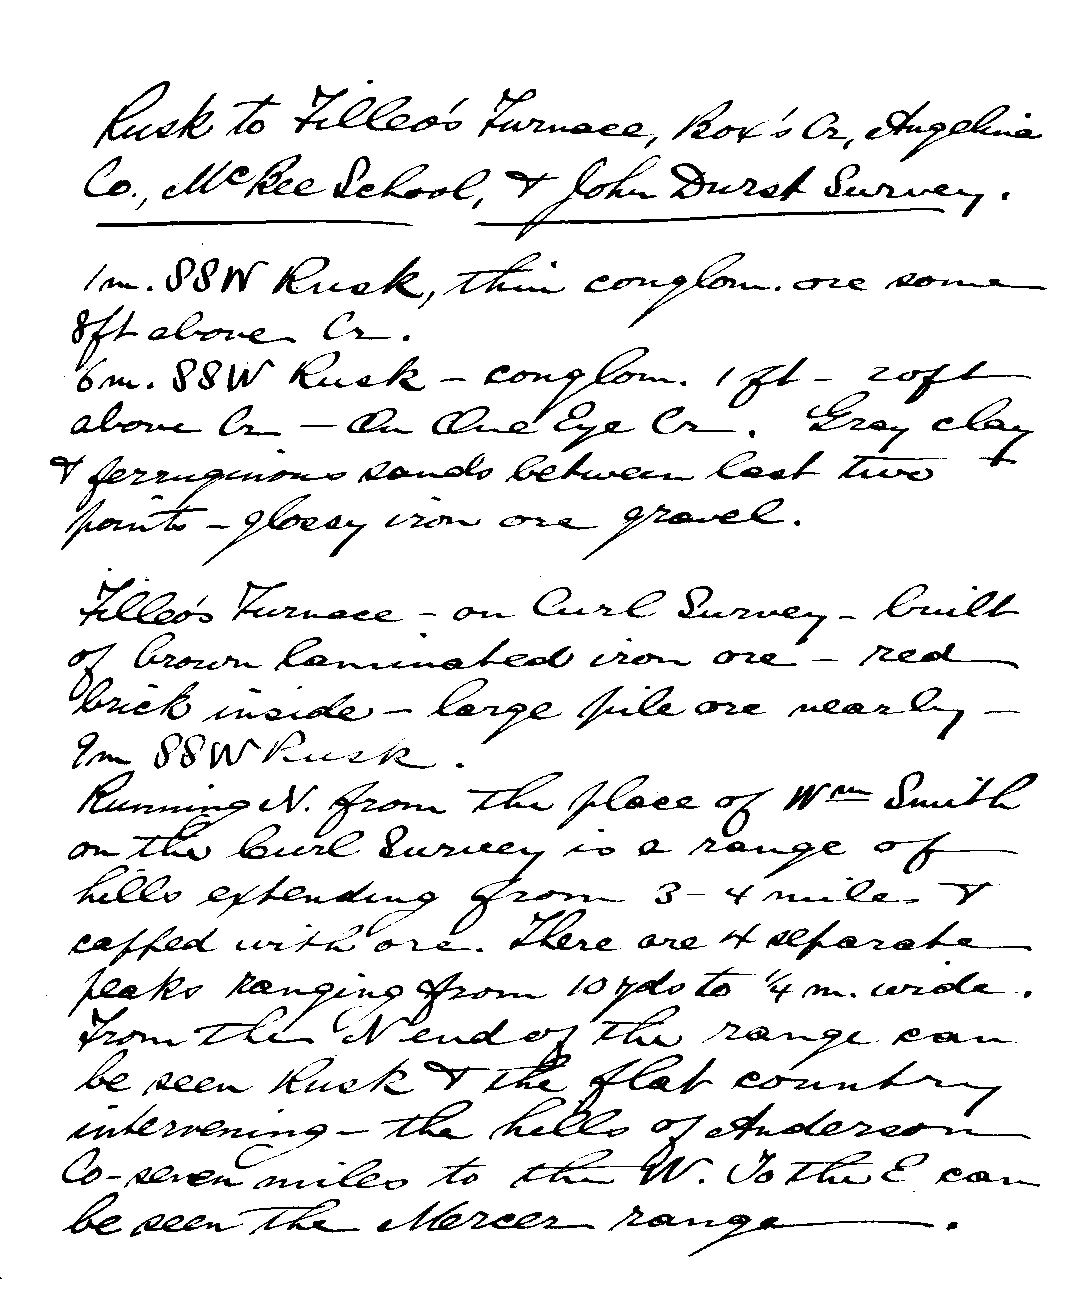 Rusk to Filleo's Furnace, Box's Cr, Angelina
Co., McBee School, & John Durst Survey.
1m. SSW Rusk, thin conglom. ore some
8ft above Cr.
6m. SSW Rusk – conglom. 1 ft – 20ft
above Cr – On One Eye Cr. Gray clay
& ferruginous sands between last two
points – glossy iron ore gravel.
Filleo's Furnace – on Curl Survey – built
of brown laminated iron ore – red
brick inside – large pile ore nearby –
9m SSW Rusk.
Running N. from the place of Wm Smith
on the Curl Survey is a range of
hills extending from 3–4 miles &
capped with ore. There are 4 separate
peaks ranging from 10 yds to 1/4 m. wide.
From the N end of the range can
be seen Rusk & the flat country
intervening – the hills of Anderson
Co – seven miles to the W. To the E can
be seen the Mercer range.